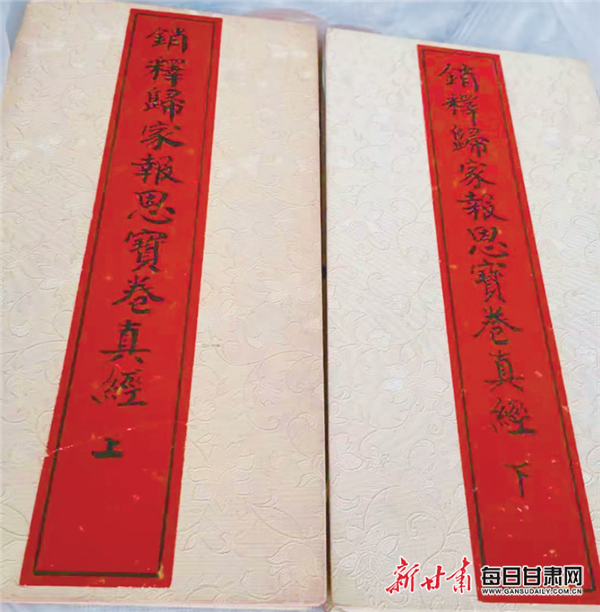 銷釋歸家報恩寶卷真經 上
銷釋歸家報恩寶卷真經 下
新甘肃 每日甘肃网
WWW.GANSUDAILY.COM.CN